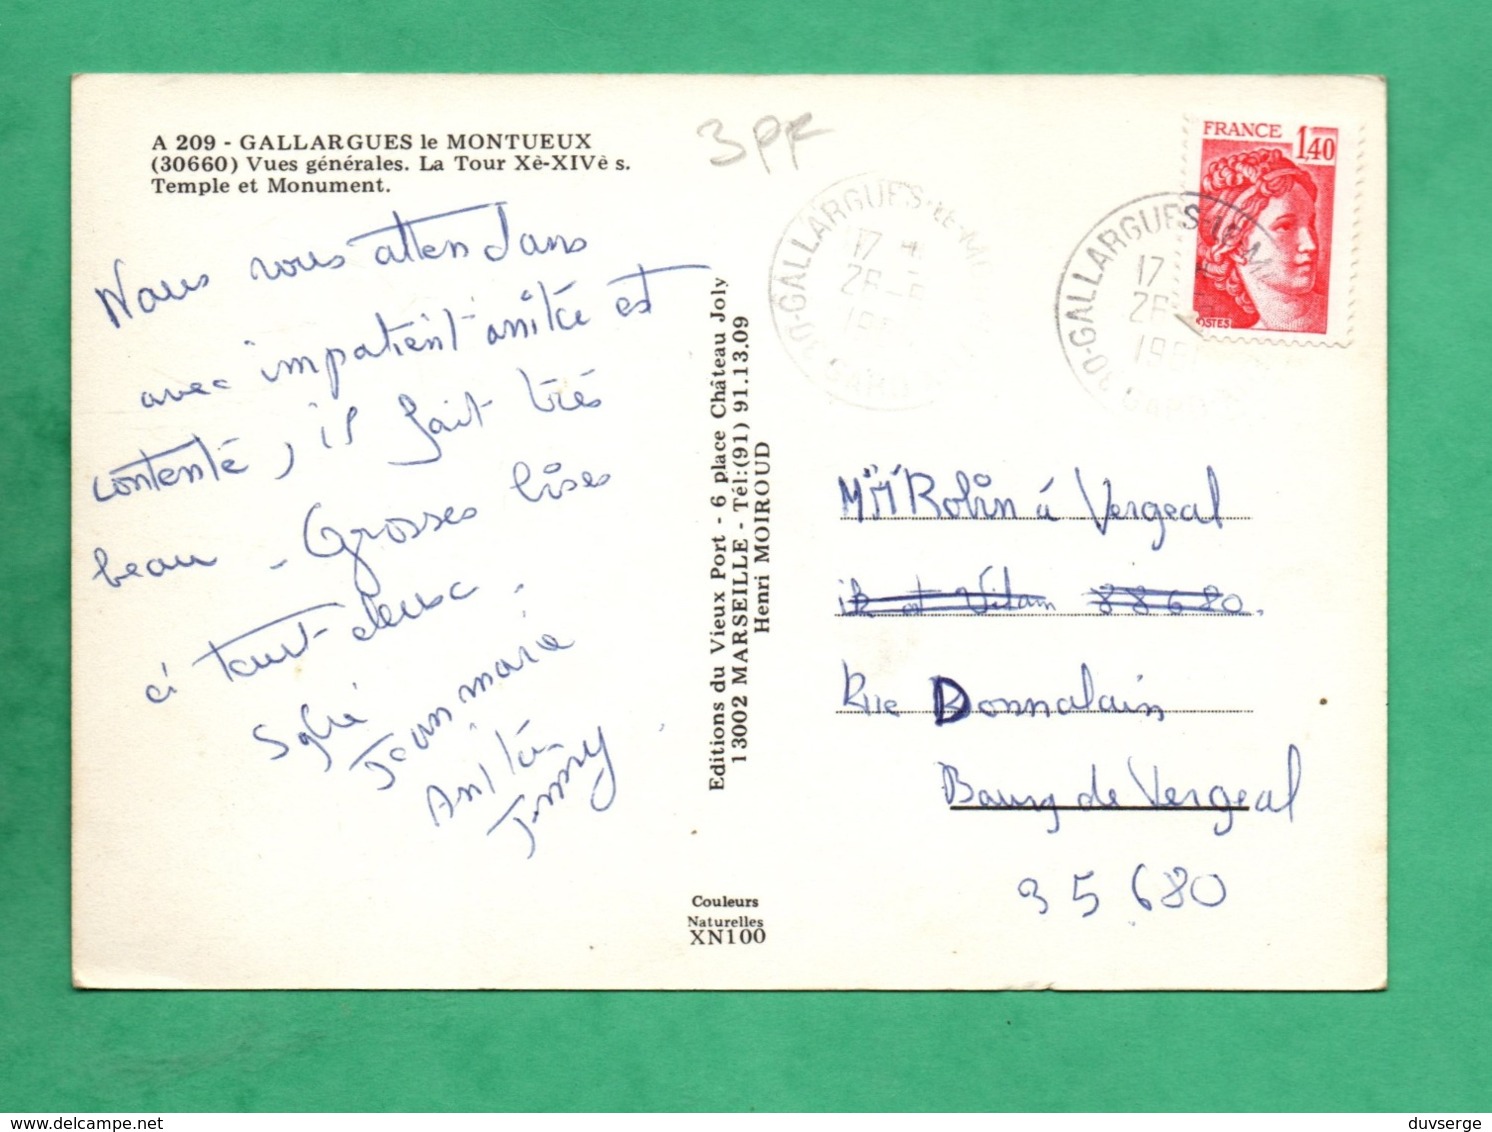 A 209 - GALLARGUES le MONTUEUX
(30660) Vues générales. La Tour Xè-XIVè s.
Temple et Monument.
3PF
Nous vous attendans
avec impatient anitée est
contenté, il fait très
beau - Grosses bises
à tout deux.
Sylié
Jeanmarie
Anita
Jimmy
Editions du Vieux Port - 6 place Château Joly
13002 MARSEILLE - Tél:(91) 91.13.09
Henri MOIROUD
Couleurs
Naturelles
XN100
30-GALLARGUES-LE-M
17
26
GARD
FRANCE 1,40
POSTES
30-GALLARGUES-LE-M
17
26
GARD
Robin à Vergeal
et 88680
Rue Donnalain
Bourg de Vergeal
35680
duvserge